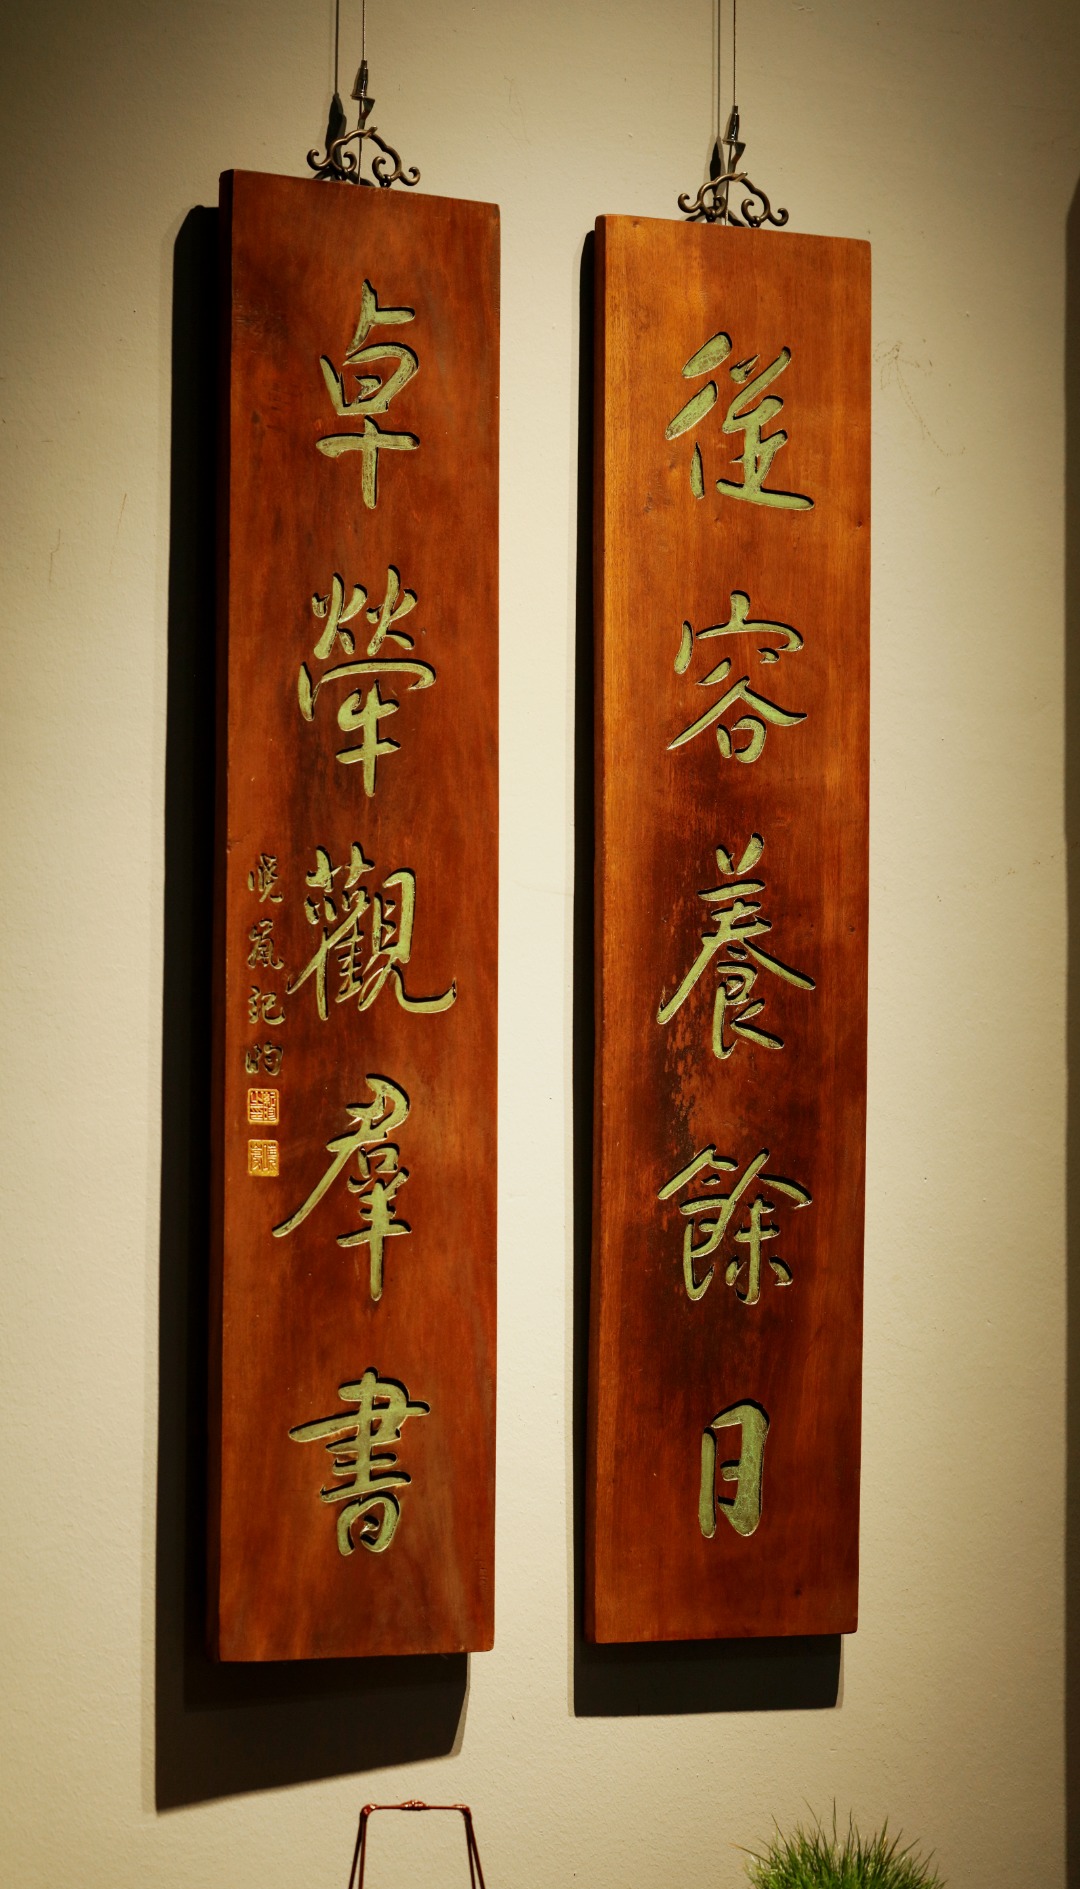 從容養餘日
卓犖觀羣書
曉嵐記昀